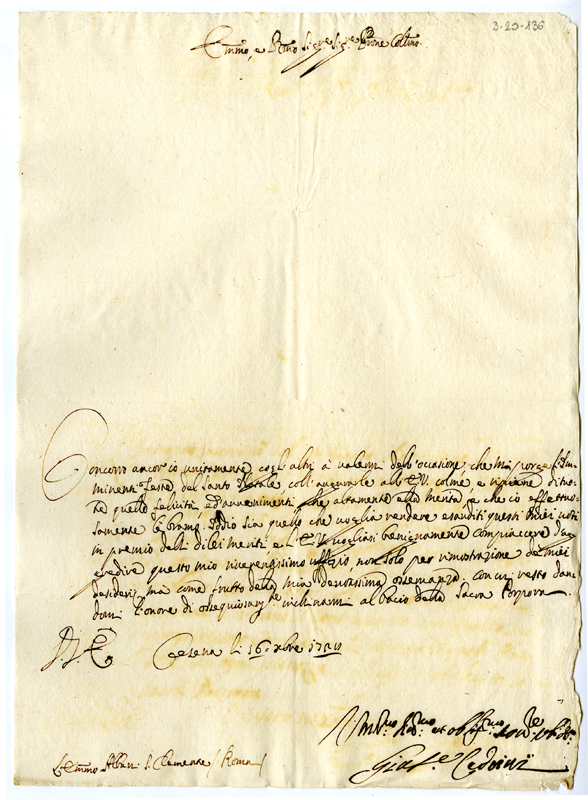 3-20-136
Emmo, e Rmo Sigre Sigre Prone Colmo.
Concorro ancor' io unitamente cogl'altri à valermi dell'occasione, che mi porge l'im
minenti Feste del Santo Natale coll'augurarle all'E.V. colme, e ripiene di tut
te quelle felicità ed avvenimenti che altamente ella merita, e che io affettuo
samente le bramo. Iddio sia quello che voglia rendere esauditi questi miei voti
in premio delli di lei meriti e l'E.V. vogliasi benignamente compiacere d'ag
gradire questo mio riverentissimo uffizio, non solo per rimostrazione de miei
desideri, ma come frutto della mia devotissima osservanza, con cui resto dan
domi l'onore di ossequiosamte inchinarmi al bacio della Sacra Porpora.
Di V. E.
Cesena li 16 Xbre
Giuse
L'Emmo Albani S. Clemente / Roma /